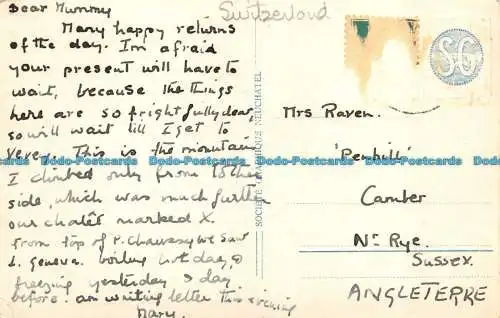 Dear Mummy
Many happy returns
of the day. I'm afraid
your present will have to
wait, because the things
here are so frightfully dear,
so will wait till I get to
Vevey. This is the mountain
I climbed only from other
side, which was much further
our chalêt marked X.
From top of P. Chaussy we saw
L. Geneva. boiling hot day, &
freezing yesterday & day
before. am writing letter this evening
Mary.
Switzerland
SG
SOCIÉTÉ GRAPHIQUE NEUCHATEL
Mrs Raven.
'Penhill'
Camber
Nr Rye.
Sussex.
ANGLETERRE
Dodo-Postcards Dodo-Postcards Dodo-Postcards Dodo-Postcards Dodo-Postcards